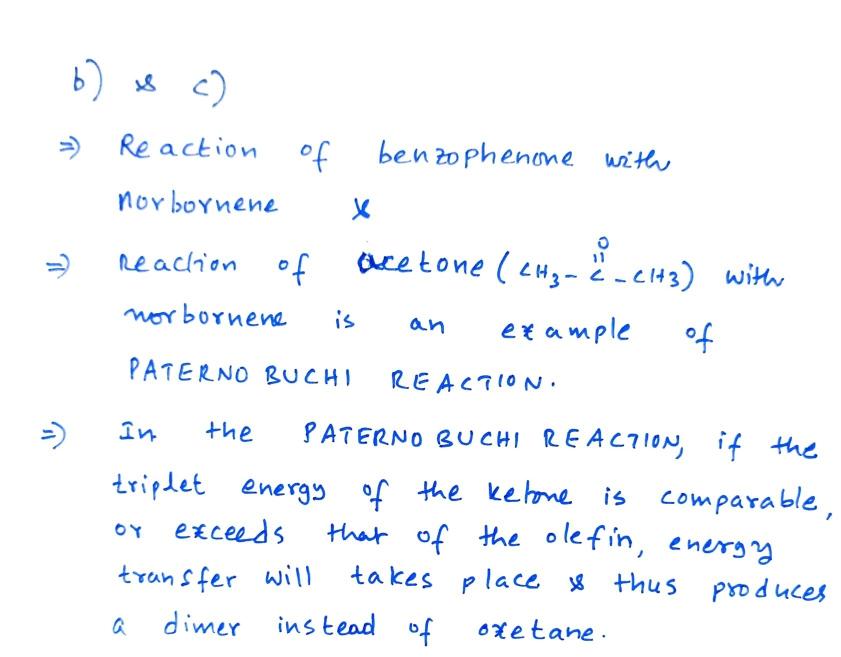 b) & c)
⇒ Reaction of benzophenone with
norbornene &
⇒ Reaction of acetone (CH3-C-CH3) with
O
norbornene is an example of
PATERNO BUCHI REACTION.
⇒ In the PATERNO BUCHI REACTION, if the
triplet energy of the ketone is comparable,
or exceeds that of the olefin, energy
transfer will takes place & thus produces
a dimer instead of oxetane.